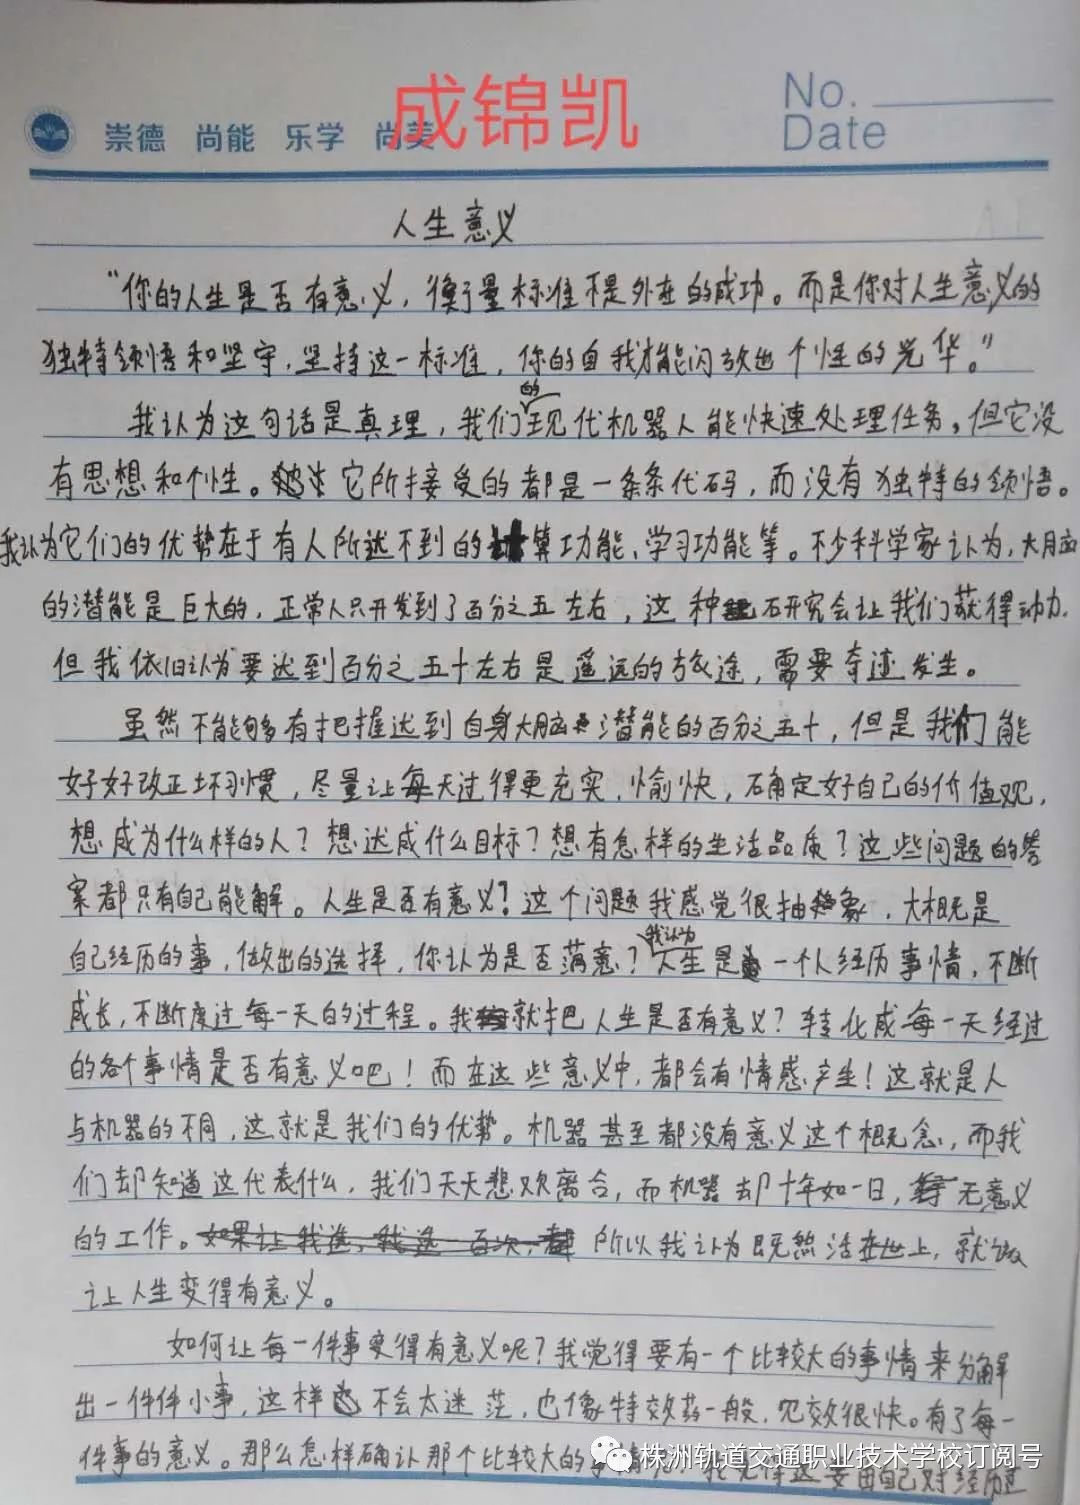 崇德 尚能 乐学 尚美
成锦凯
No.
Date
人生意义
“你的人生是否有意义，衡量标准不是外在的成功。而是你对人生意义的
独特领悟和坚守，坚持这一标准，你的自我才能闪放出个性的光华。”
我认为这句话是真理，我们的现代机器人能快速处理任务，但它没
有思想和个性。它所接受的都是一条条代码，而没有独特的领悟。
我认为它们的优势在于有人所达不到的计算功能、学习功能等。不少科学家认为，大脑
的潜能是巨大的，正常人只开发到了百分之五左右，这种研究会让我们获得动力，
但我依旧认为要达到百分之五十左右是遥远的旅途，需要奇迹发生。
虽然不能够有把握达到自身大脑潜能的百分之五十，但是我们能
好好改正坏习惯，尽量让每天过得更充实，愉快，确定好自己的价值观，
想成为什么样的人？想达成什么目标？想有怎样的生活品质？这些问题的答
案都只有自己能解。人生是否有意义？这个问题我感觉很抽象，大概是
自己经历的事，做出的选择，你认为是否满意？我认为人生是一个人经历事情，不断
成长，不断度过每一天的过程。我就把人生是否有意义？转化成每一天经过
的各个事情是否有意义吧！而在这些意义中，都会有情感产生！这就是人
与机器的不同，这就是我们的优势。机器甚至都没有意义这个概念，而我
们却知道这代表什么，我们天天悲欢离合，而机器却十年如一日，无意义
的工作。如果让我选，我选一百次，都 所以我认为既然活在世上，就做
让人生变得有意义。
如何让每一件事变得有意义呢？我觉得要有一个比较大的事情来分解
出一件件小事，这样不会太迷茫，也像特效药一般，见效很快。有了每一
件事的意义。那么怎样确认那个比较大的
要由自己对经历过
株洲轨道交通职业技术学校订阅号